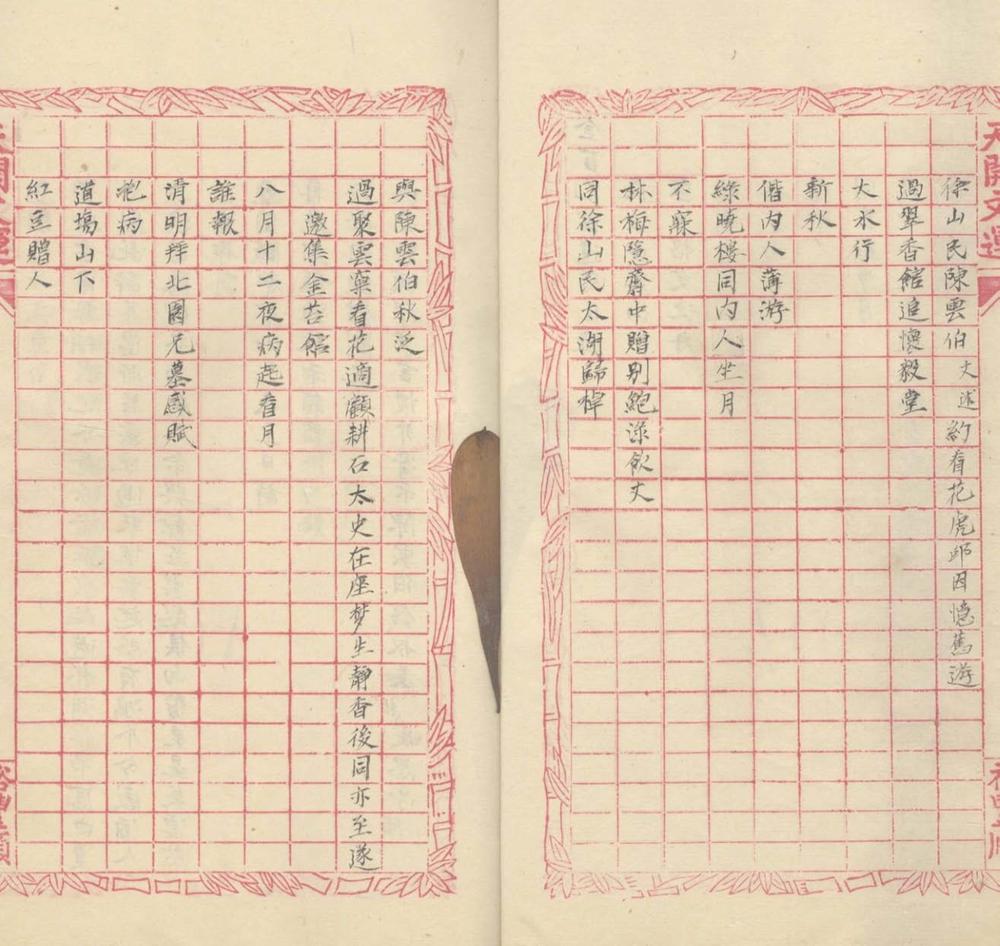 徐山民陳雲伯丈述約看花虎邱因憶舊遊
過翠香館追懷毅堂
大水行
新秋
偕內人薄游
綠曉樓同內人坐月
不寐
林梅隐齋中贈別鮑渌飲丈
同徐山民太湖歸棹
與陳雲伯秋泛
過聚雲窠看花適顧耕石太史在座梦生靜香後同亦至遂
邀集金苔館
八月十二夜病起看月
誰報
清明拜北園兄墓感賦
抱病
道場山下
紅豆贈人
天開文運